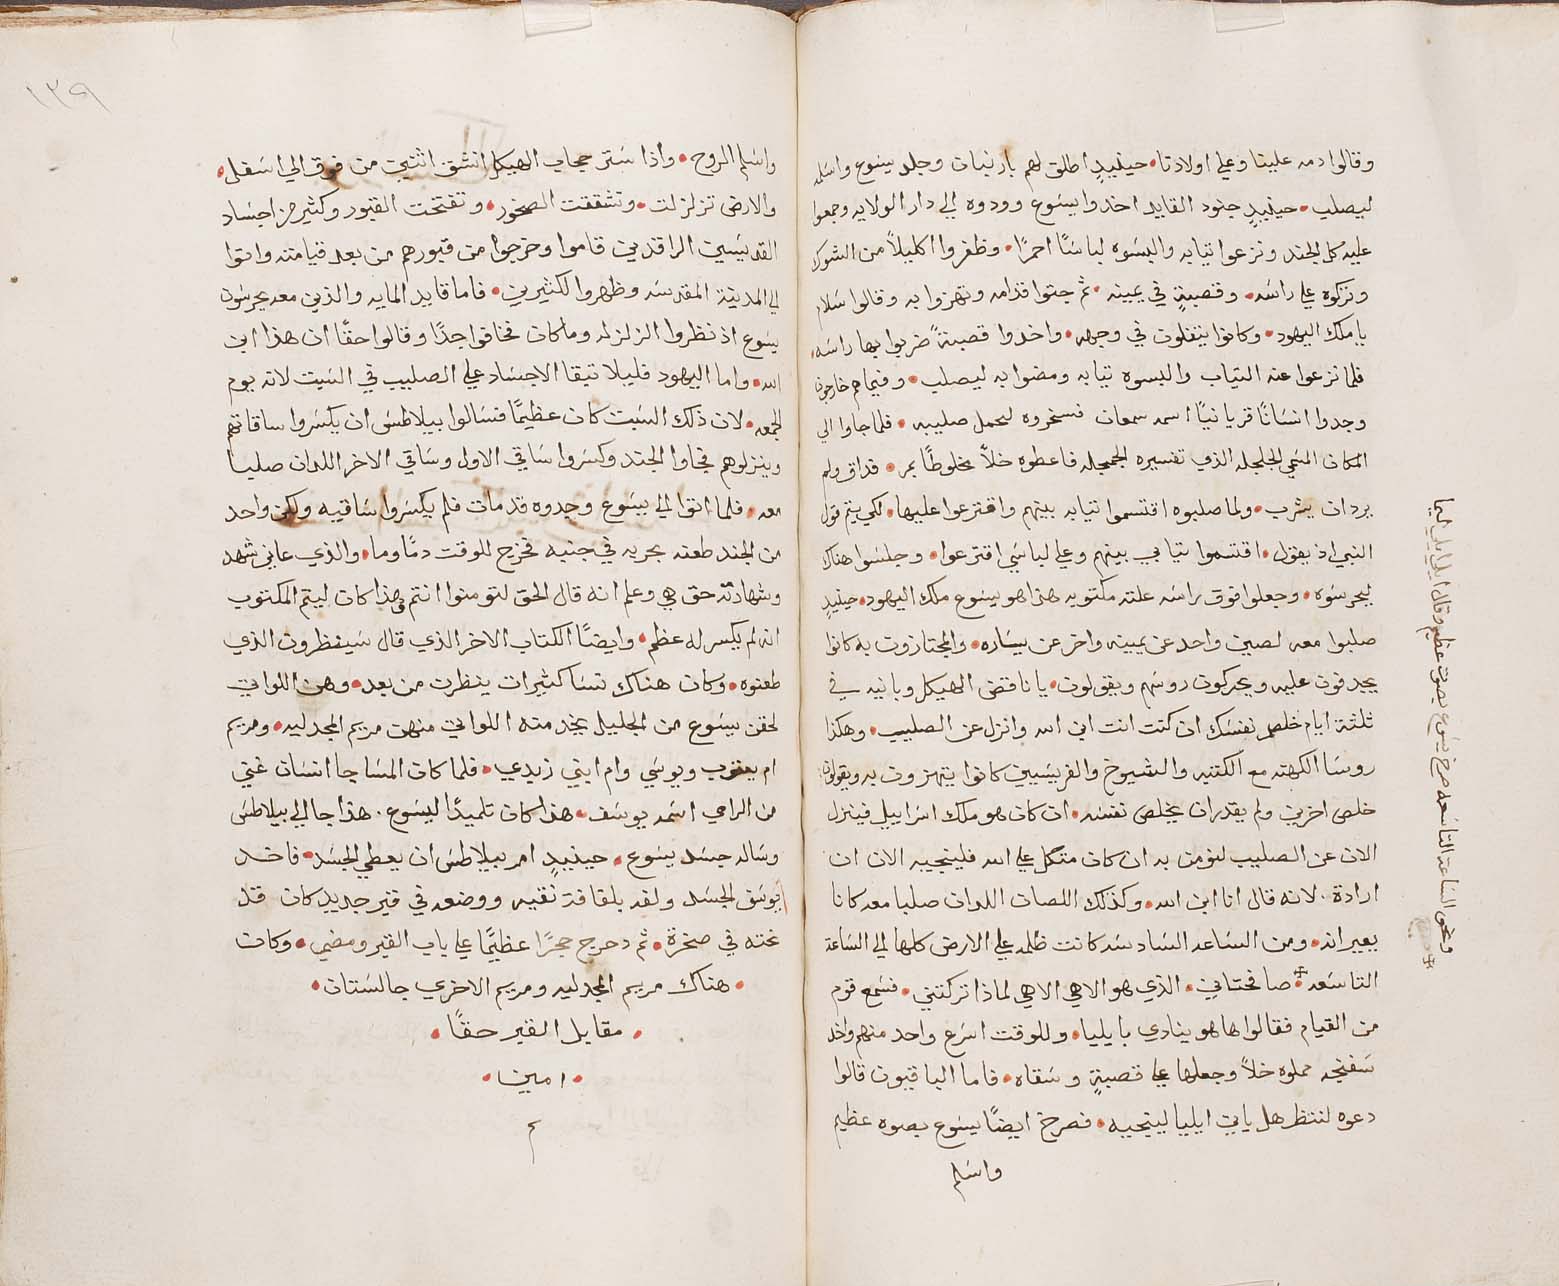 وقالوا دمه علينا وعلي اولادنا• حينيدٍ اطلق لهم بارنبان وجلد يسوع واسلمه
ليصلب• حينيدٍ جنود القايد اخدوا يسوع وودوه الي دار الولايه وجمعوا
عليه كل الجند ونزعوا تيابه والبسوه لباسًا احمرًا• وظفروا اكليلاً من الشوك
وتركوه علي راسه• وقصبةٍ في يمينه• ثم جتوا قدامه وتهزوا به وقالوا سلام
يا ملك اليهود• وكانوا يتفلون في وجهه• واخدوا قصبةً ضربوا بها راسه•
فلما نزعوا عنه التياب والبسوه تيابه ومضوا به ليصلب• وفيما هم خارجون
وجدوا انسانًا قريانيًا اسمه سمعان فسخروه لحمل صليبه• فلما جاوا الي
المكان المسمي الجلجله الذي تفسيره الجمجله فاعطوه خلاً مخلوطًا بمر• فداق ولم
يرد ان يشرب• ولما صلبوه اقتسموا تيابه بينهم واقترعوا عليها• لكي يتم قول
النبي اذ يقول• اقتسموا تيابي بينهم وعلي لباسي اقترعوا• وجلسوا هناك
ليحرسوه• وجعلوا فوق راسه علته مكتوبه هذا هو يسوع ملك اليهود• حينيدٍ
صلبوا معه لصين واحد عن يمينه واخر عن يساره• والمجتازون به كانوا
يجدفون عليه ويحركون روسهم ويقولون• يا ناقض الهيكل وبانيه في
ثلثة ايام خلص نفسك ان كنت انت ابن الله وانزل عن الصليب• وهكذا
روسا الكهنه مع الكتبه والشيوخ والفريسيين كانوا يتهزون به ويقولون
خلص اخرين ولم يقدر ان يخلص نفسه• ان كان هو ملك اسراييل فينزل
الان عن الصليب لنومن به ان كان متكل علي الله فلينجيه الان ان
ارادة• لانه قال انا ابن الله• وكذلك اللصان اللدان صلبا معه كانا
يعيرانه• ومن الساعه السادسه كانت ظلمه علي الارض كلها الي الساعة
التاسعه• صافختاني• الذي هو الاهي الاهي لماذا تركتني• فسمع قوم
من القيام فقالوا ها هو ينادي بايليا• وللوقت اسرع واحد منهم واخد
سفنجه مملوه خلاً وجعلها علي قصبةٍ وسقاه• فاما الباقيون قالوا
دعوه لننتظر هل ياتي ايليا لينجيه• فصرخ ايضًا يسوع بصوه عظيم
واسلم
ونحو الساعة التاسعه صرخ يسوع بصوت عظيم وقال ايلي ايلي ليما
١٣٩
واسلم الروح• واذا ستر حجاب الهيكل انشق اثنتين من فوق الي اسفل•
والارض تزلزلت• وتشققت الصخور• وتفتحت القبور وكثير من اجساد
القديسين الراقدين قاموا وخرجوا من قبورهم من بعد قيامته واتوا
الي المدينة المقدسه وظهروا لكثيرين• فاما قايد المايه والذين معه يحرسون
يسوع اذ نظروا الزلزله وما كان فخافوا جدًا وقالوا حقًا ان هذا ابن
الله• واما اليهود فليلا تبقا الاجساد علي الصليب في السبت لانه يوم
الجمعه• لان ذلك السبت كان عظيمًا فسالوا بيلاطس ان يكسروا ساقاتهم
وينزلوهم فجاوا الجند وكسروا ساقي الاول وساقي الاخر اللدان صلبا
معه• فلما اتوا الي يسوع وجدوه قد مات فلم يكسروا ساقيه ولكن واحد
من الجند طعنه بحربه في جنبه فخرج للوقت دمًا وما• والذي عاين شهد
وشهادته حق هي وعلم انه قال الحق لتومنوا انتم فهذا كان ليتم المكتوب
انه لم يكسر له عظم• وايضًا الكتاب الاخر الذي قال سينظرون الذي
طعنوه• وكان هناك نسا كثيرات ينظرن من بعد• وهن اللواتي
لحقن يسوع من الجليل يخدمنه اللواتي منهن مريم المجدليه• ومريم
ام يعقوب ويوسي وام ابني زبدي• فلما كان المسا جا انسان غني
من الرامي اسمه يوسف• هذا كان تلميدًا ليسوع• هذا جا الي بيلاطس
وساله جسد يسوع• حينيدٍ امر بيلاطس ان يعطي الجسد• فاخد
يوسف الجسد ولفه بلفافة نقيه ووضعه في قبر جديد كان قد
نحته في صخرة• ثم دحرج حجرًا عظيمًا علي باب القبر ومضي• وكان
• هناك مريم المجدليه ومريم الاخري جالستان•
• مقابل القبر حقًا•
• امين•
م